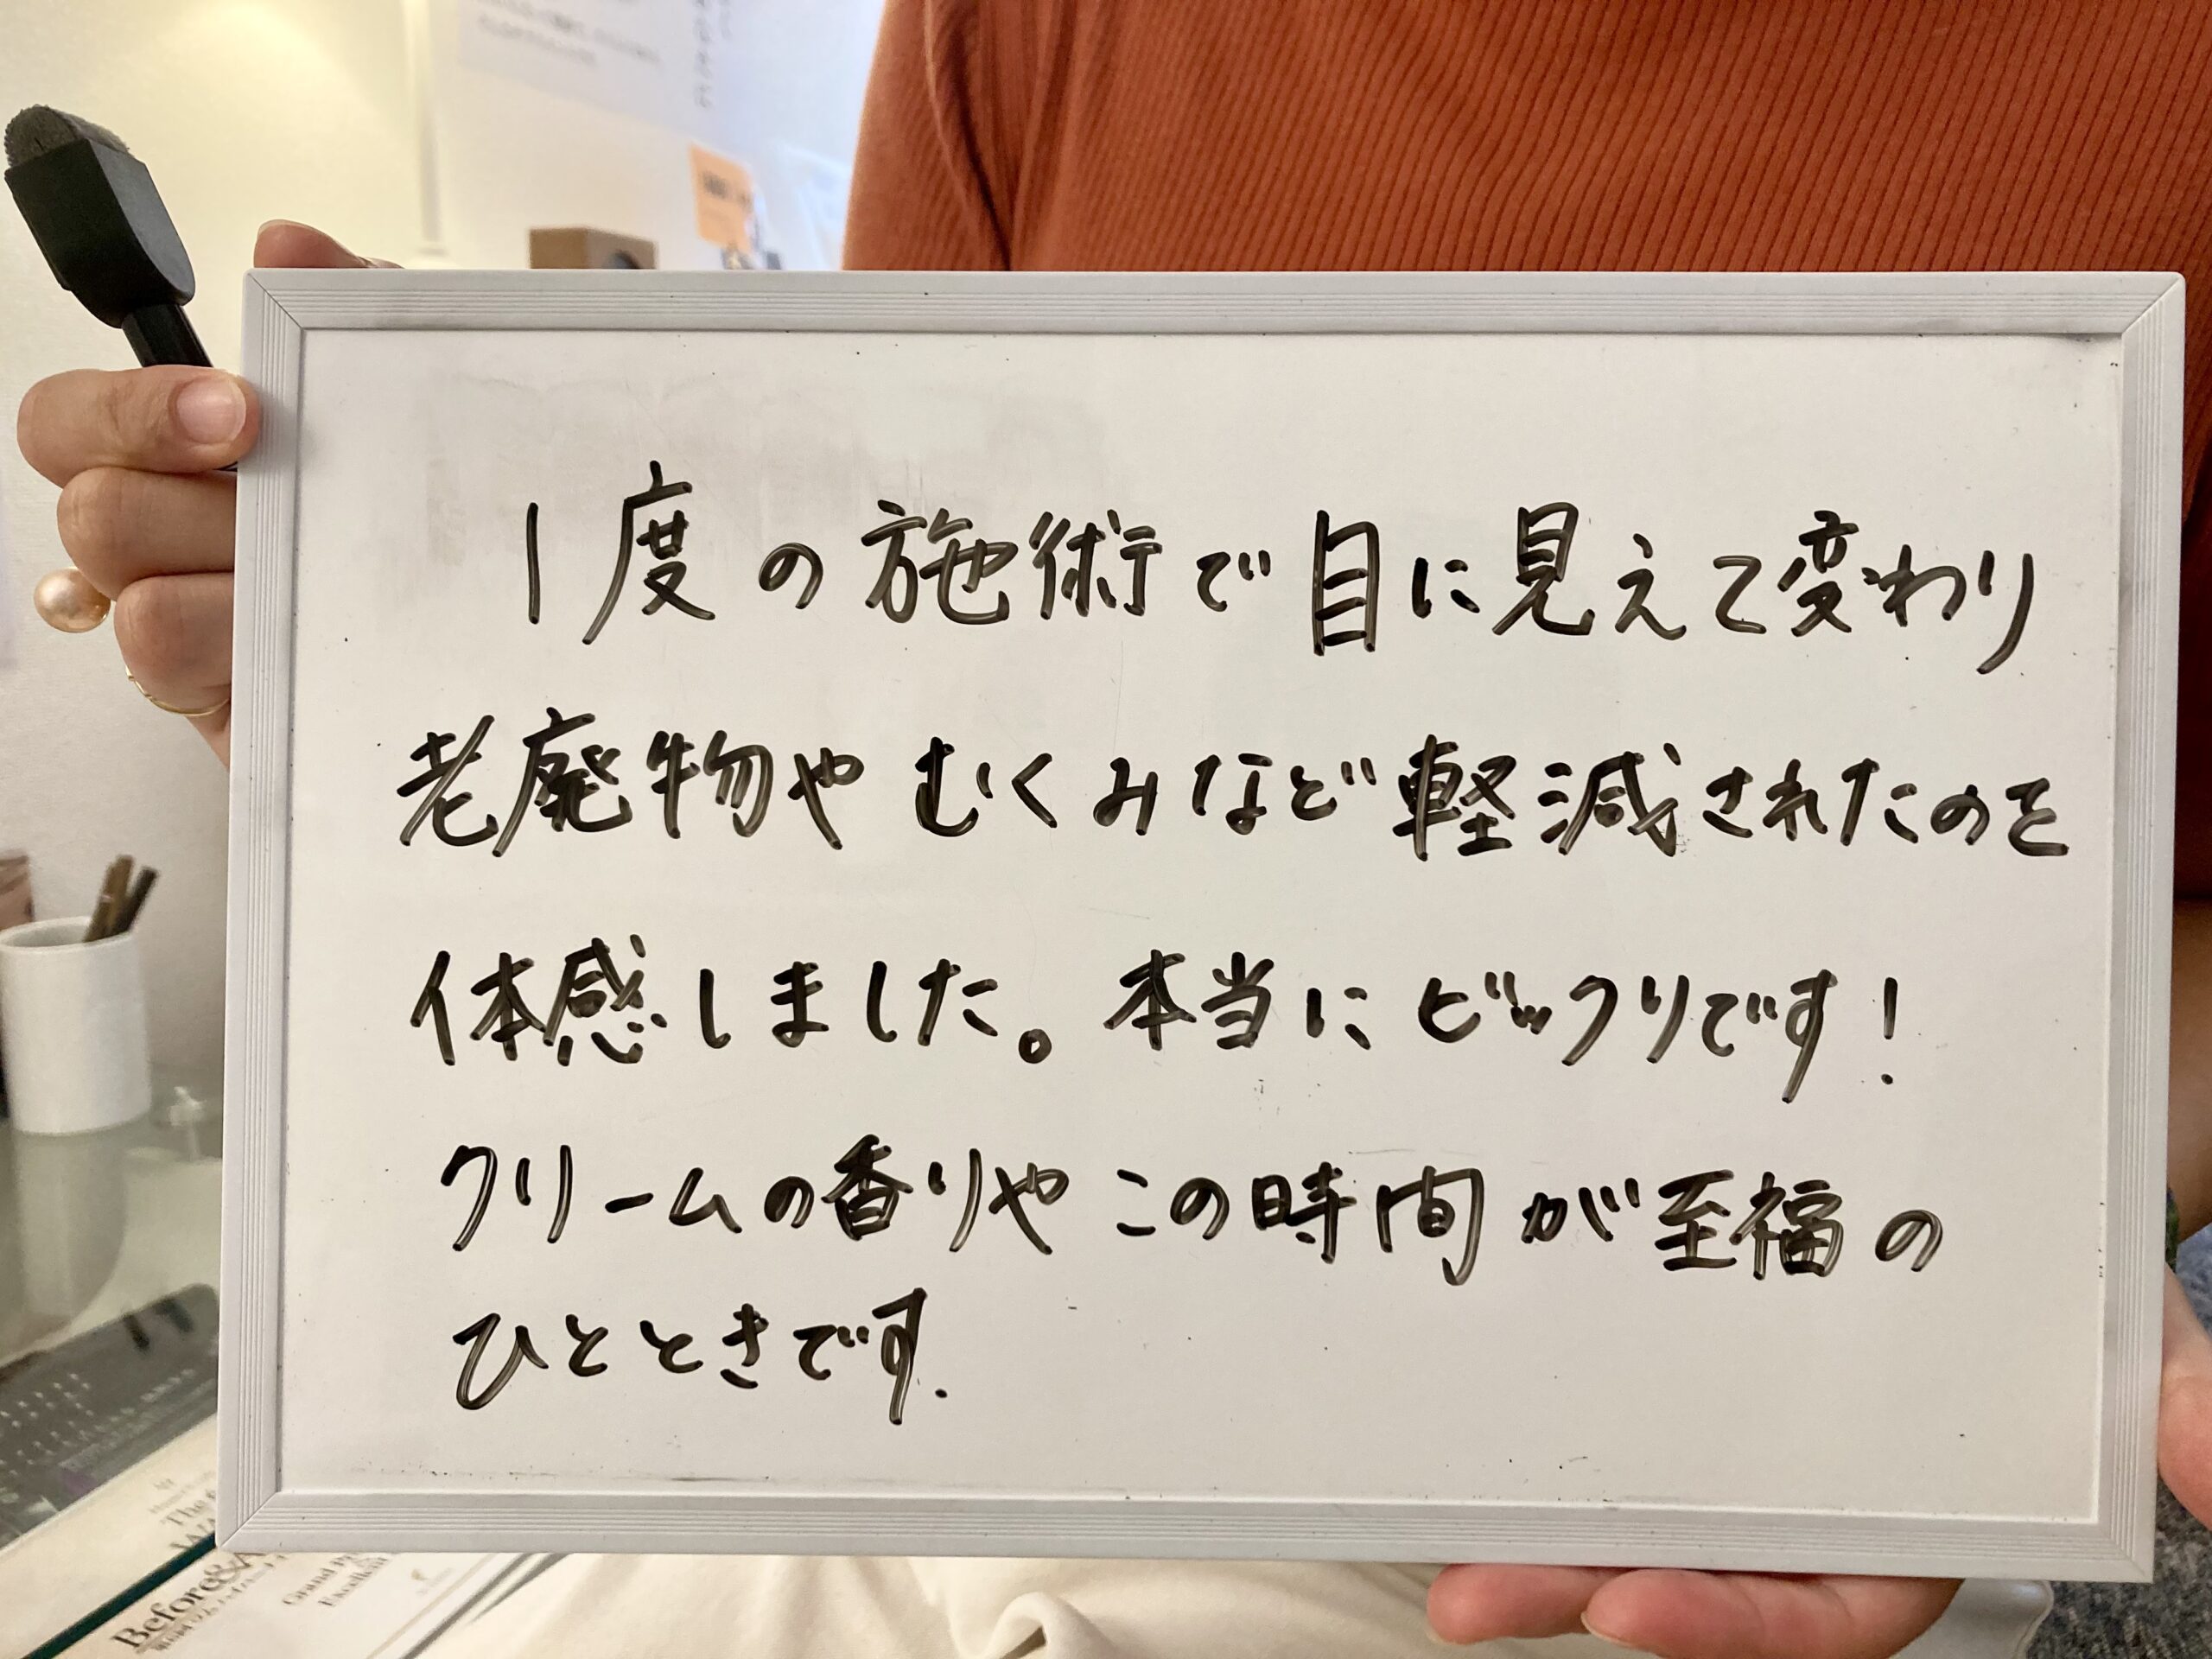 1度の施術で目に見えて変わり
老廃物やむくみなど軽減されたのを
体感しました。本当にビックリです!
クリームの香りやこの時間が至福の
ひとときです.
Before&A
Grand P
Excellen